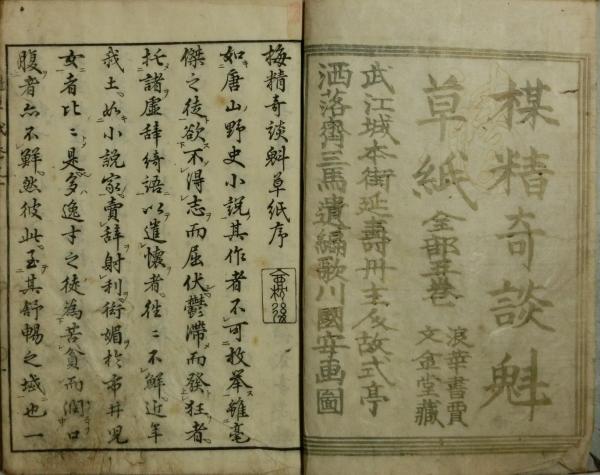 楳精奇談魁
草紙 全部五巻
浪華書賈
文金堂藏
武江城本街延壽丹主人故式亭
洒落齋三馬遺編歌川國安画圖
梅精奇談魁草紙序
如唐山野史小説其作者不可枚挙雖毫
傑之徒欲不得志而屈伏鬱滞而發狂者
托諸虚辞綺語以遣懐者往〻不鮮近年
我土如小説家賣辞射利衒媚於市井児
女者比〻是多逸才之徒為苦貧而潤口
腹者亦不鮮然彼此至其舒暢之域也一